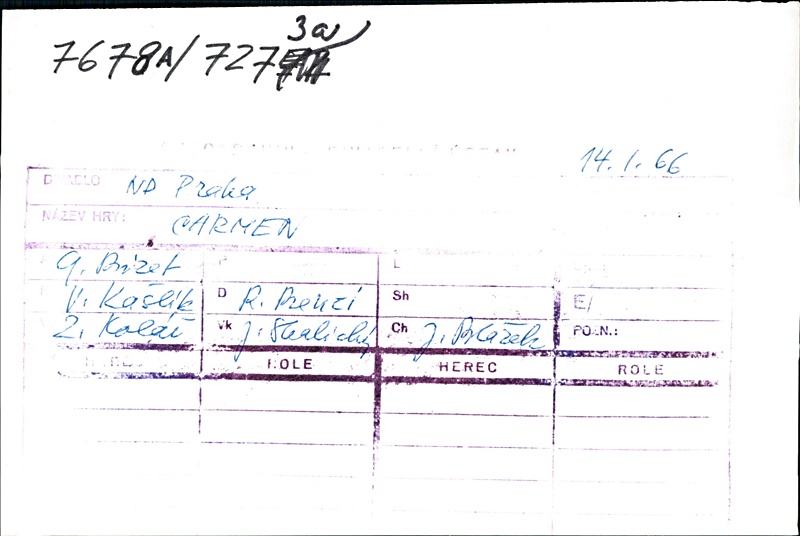 3a
7678A/727
14.1.66
DIVADLO ND Praha
NÁZEV HRY: CARMEN
G. Bizet L
V. Kašlík D R. Brenzi Sh E/
Z. Kolář Vk J. Skalický Ch J. Blažek POZN.:
ROLE HEREC ROLE